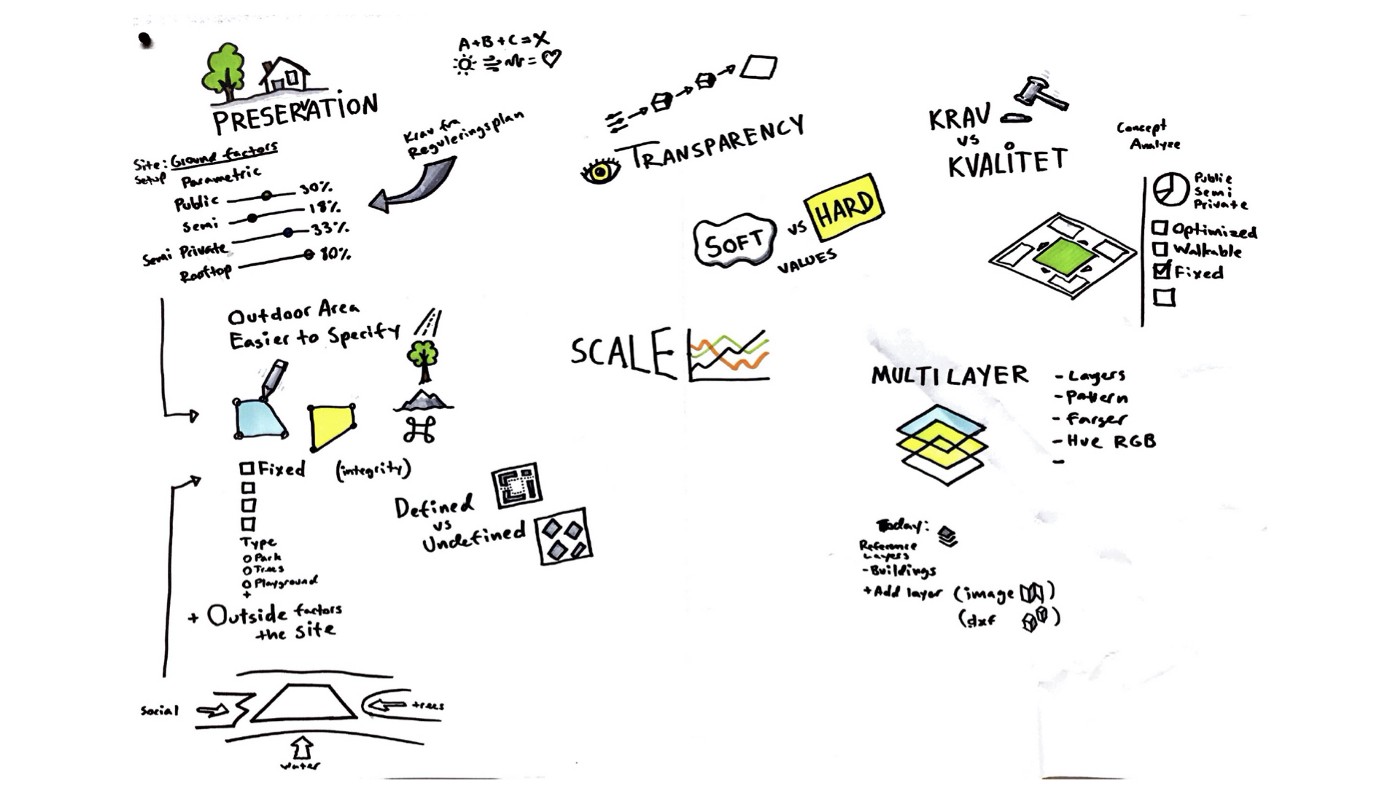 PRESERVATION
A+B+C=X
Krav fra
Reguleringsplan
Site: Ground factors
Setup Parametric
Public 30%
Semi 18%
Semi Private 33%
Rooftop 80%
Outdoor Area
Easier to Specify
Fixed (integrity)
Type
Park
Trees
Playground
+
+ Outside factors
the site
Social
trees
water
Defined
vs
Undefined
TRANSPARENCY
SOFT vs HARD
VALUES
SCALE
KRAV
VS
KVALITET
Concept
Analyze
Public
Semi
Private
Optimized
Walkable
Fixed
MULTILAYER
- Layers
- Pattern
- Farger
- Hue RGB
-
Today:
Reference
Layers
- Buildings
+ Add layer (image)
(dxf)